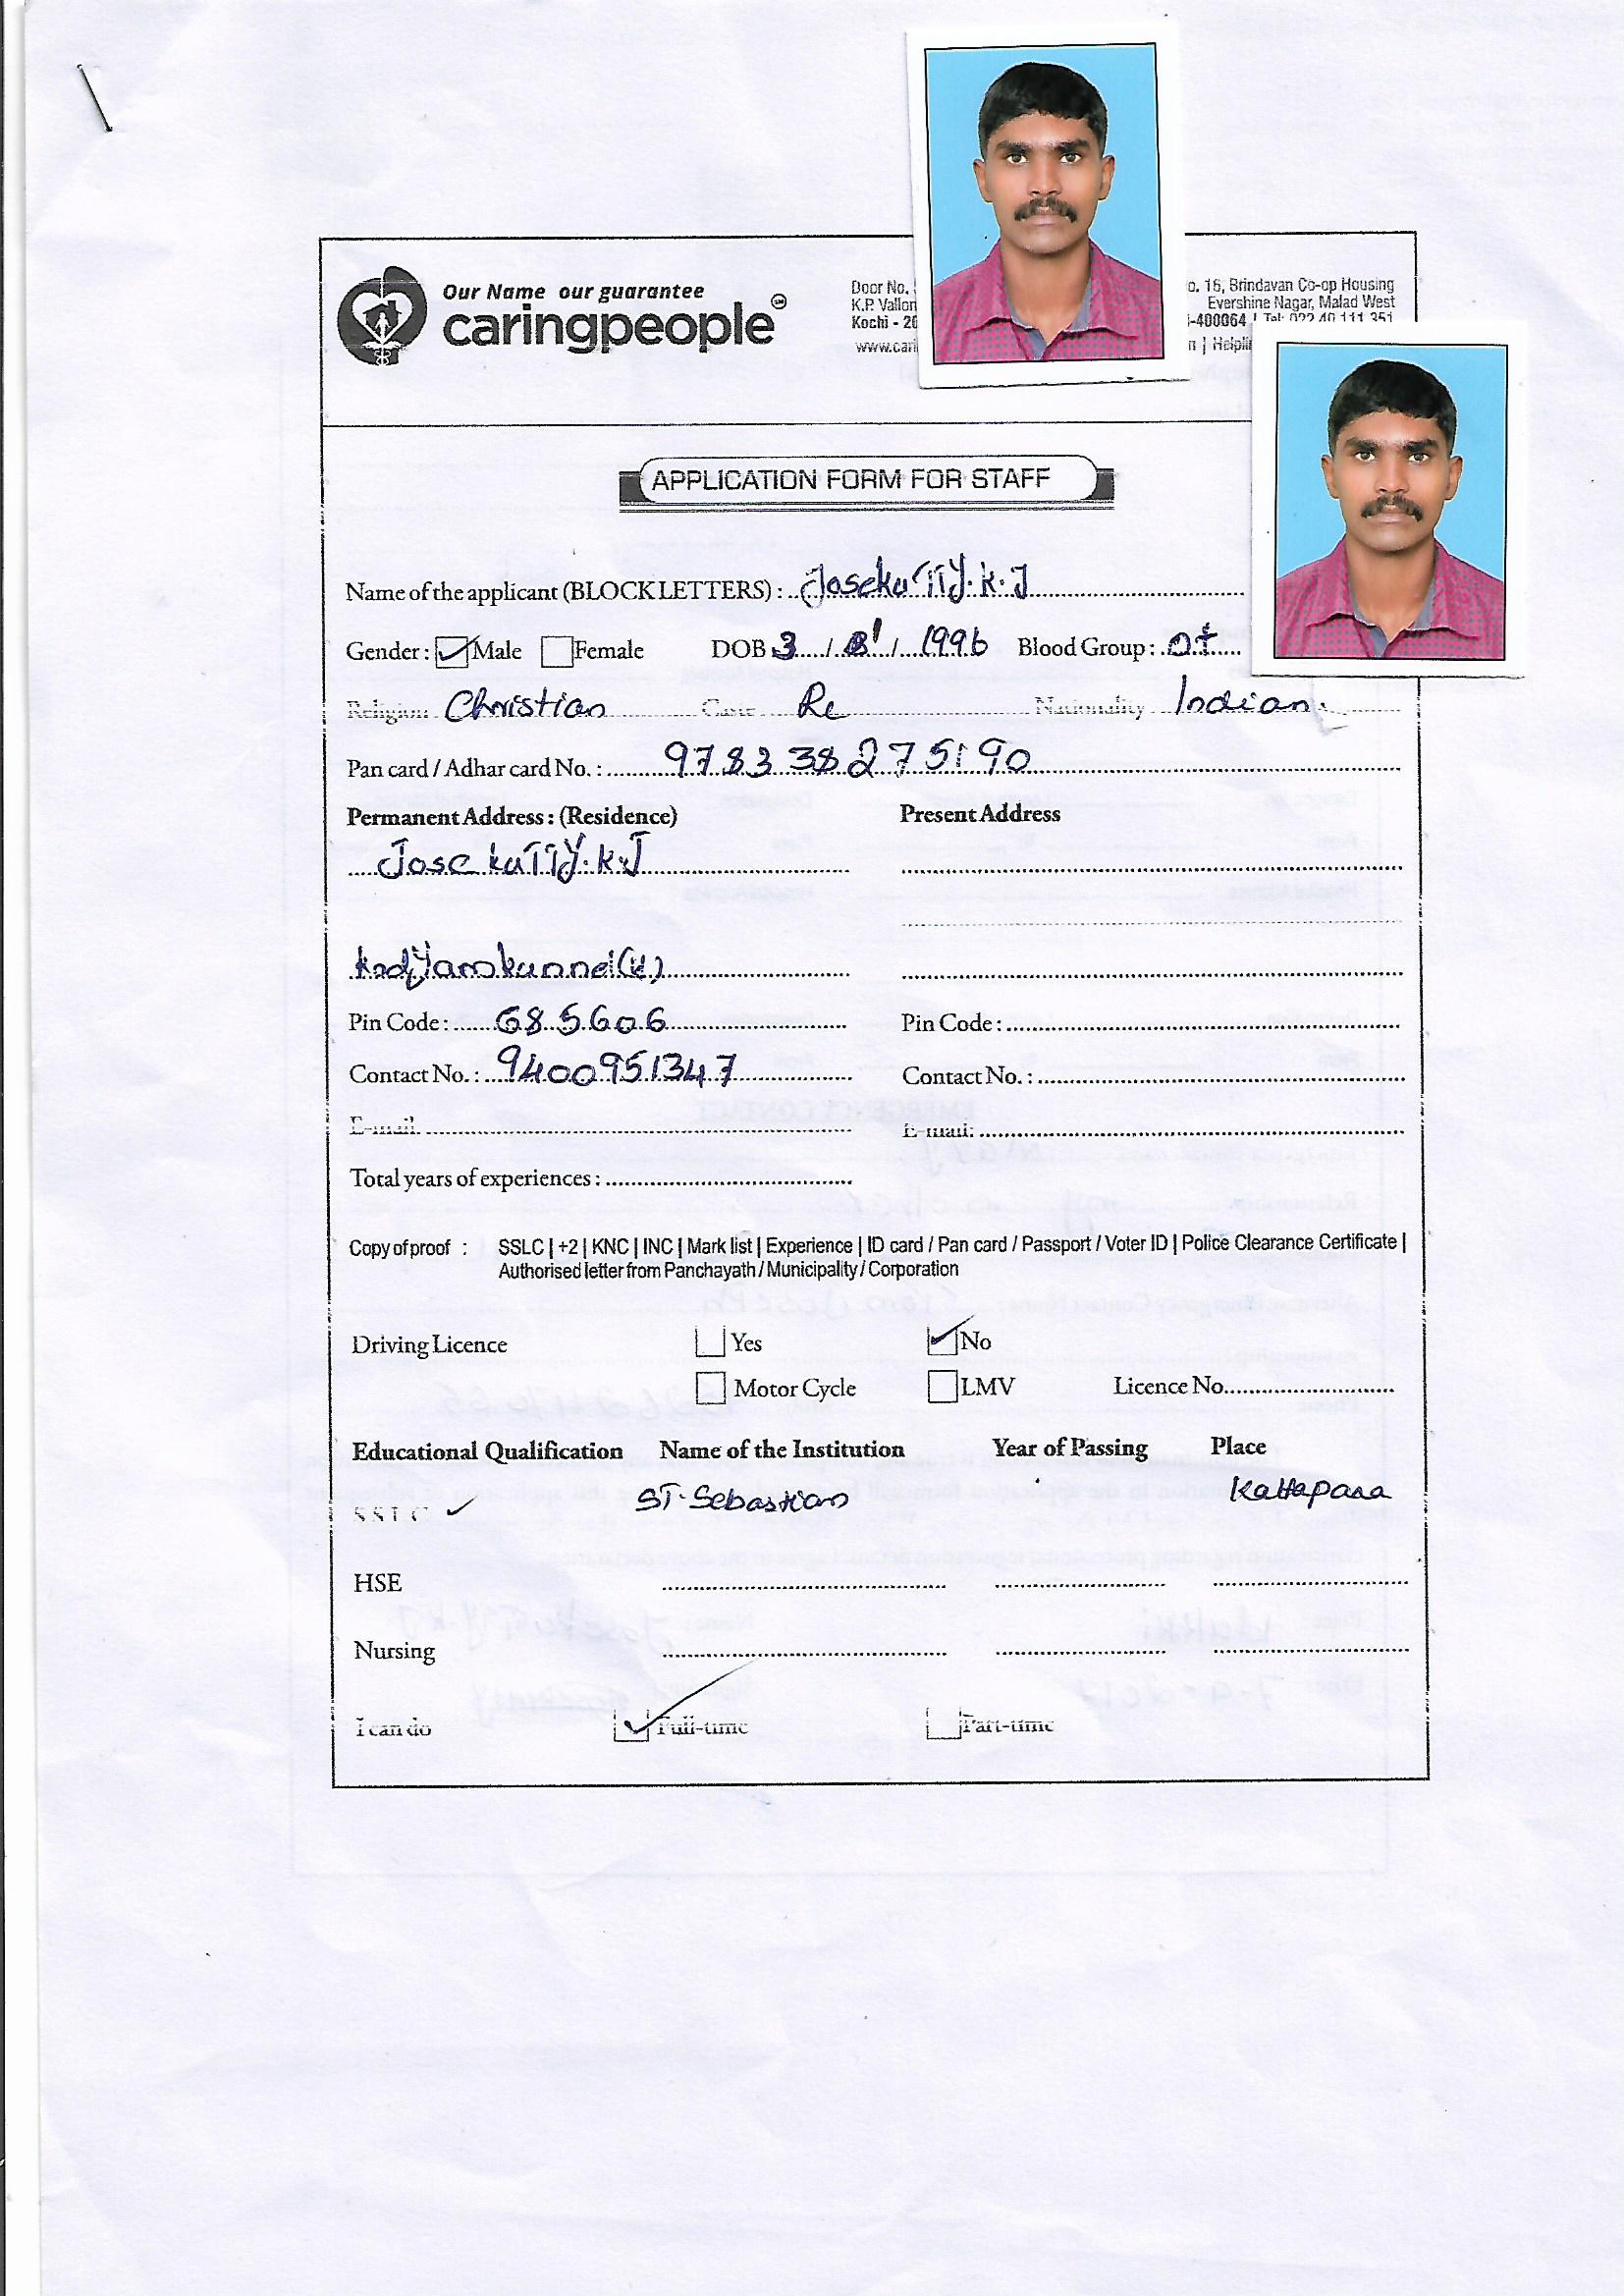 Our Name our guarantee
caringpeople
Door No.
K.P. Vallon
Kochi - 20
www.cari
o. 16, Brindavan Co-op Housing
Evershine Nagar, Malad West
-400064 | Tel: 022 40 111 351
n | Helpli
APPLICATION FORM FOR STAFF
Name of the applicant (BLOCK LETTERS) : JosekuTTY.K.J
Gender : Male Female DOB 3 / / 1996 Blood Group : O+
Religion Christian Rc Nationality Indian
Pan card / Adhar card No. : 9783 38 275190
Permanent Address : (Residence) Present Address
Jose kuTTY.K.J
Pin Code : 685606 Pin Code :
Contact No. : 9400951347 Contact No. :
E-mail: E-mail:
Total years of experiences :
Copy of proof : SSLC | +2 | KNC | INC | Mark list | Experience | ID card / Pan card / Passport / Voter ID | Police Clearance Certificate |
Authorised letter from Panchayath / Municipality / Corporation
Driving Licence Yes No
Motor Cycle LMV Licence No.
Educational Qualification Name of the Institution Year of Passing Place
SSLC ST. Sebastian Kattapana
HSE
Nursing
I can do Full-time Part-time